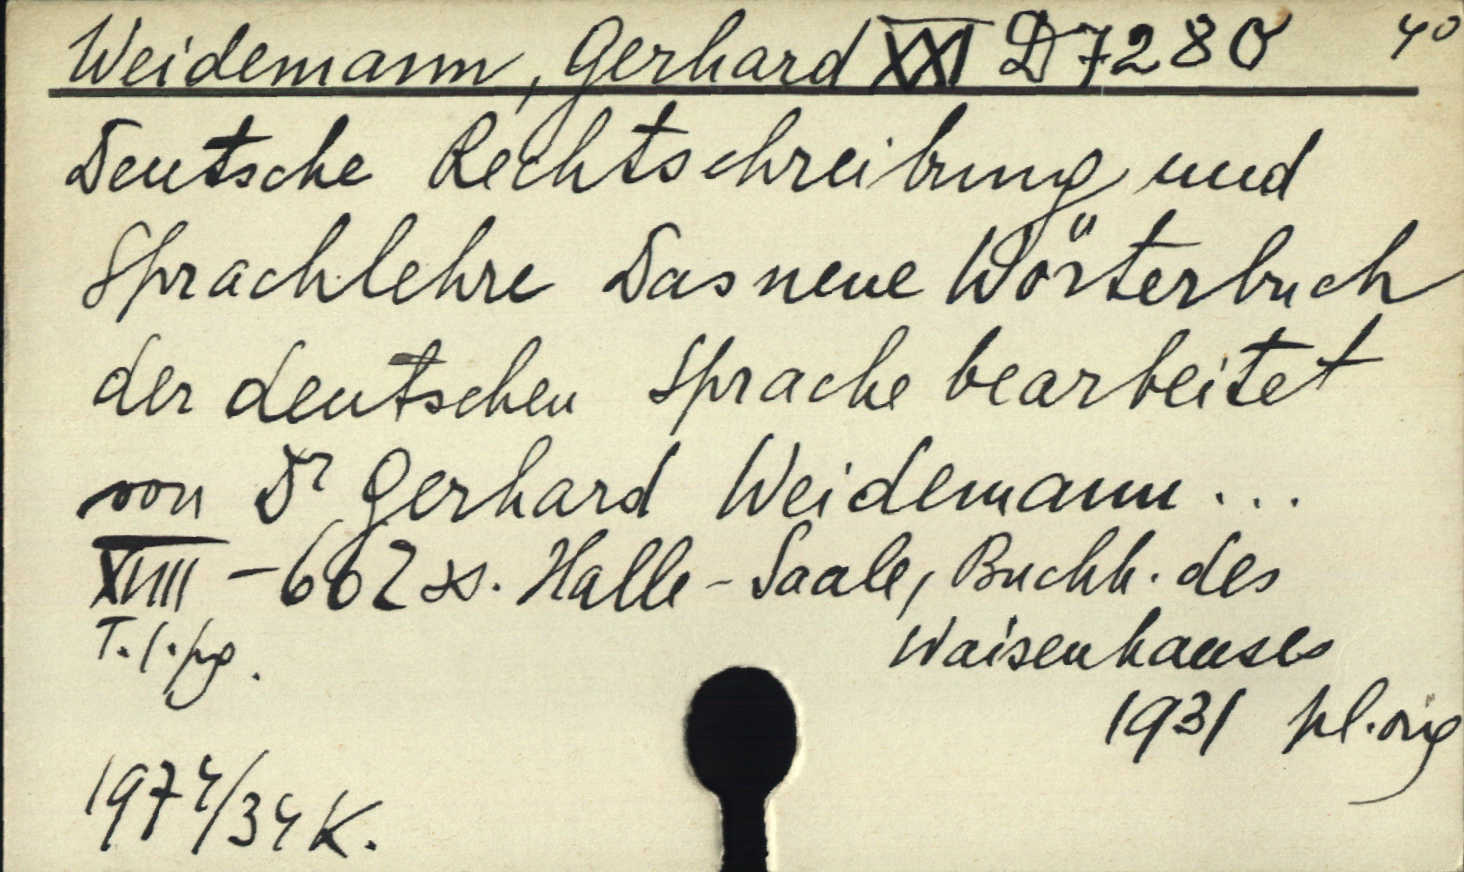 Weidemann, Gerhard XXI D 7280 4°
Deutsche Rechtschreibung und
Sprachlehre Das neue Wörterbuch
der deutschen Sprache bearbeitet
von Dr Gerhard Weidemann ...
XVIII - 662 s. Halle - Saale, Buchh. des
T. 1. pg. Waisenhauses
1931 pl. orig
1974/34 K.